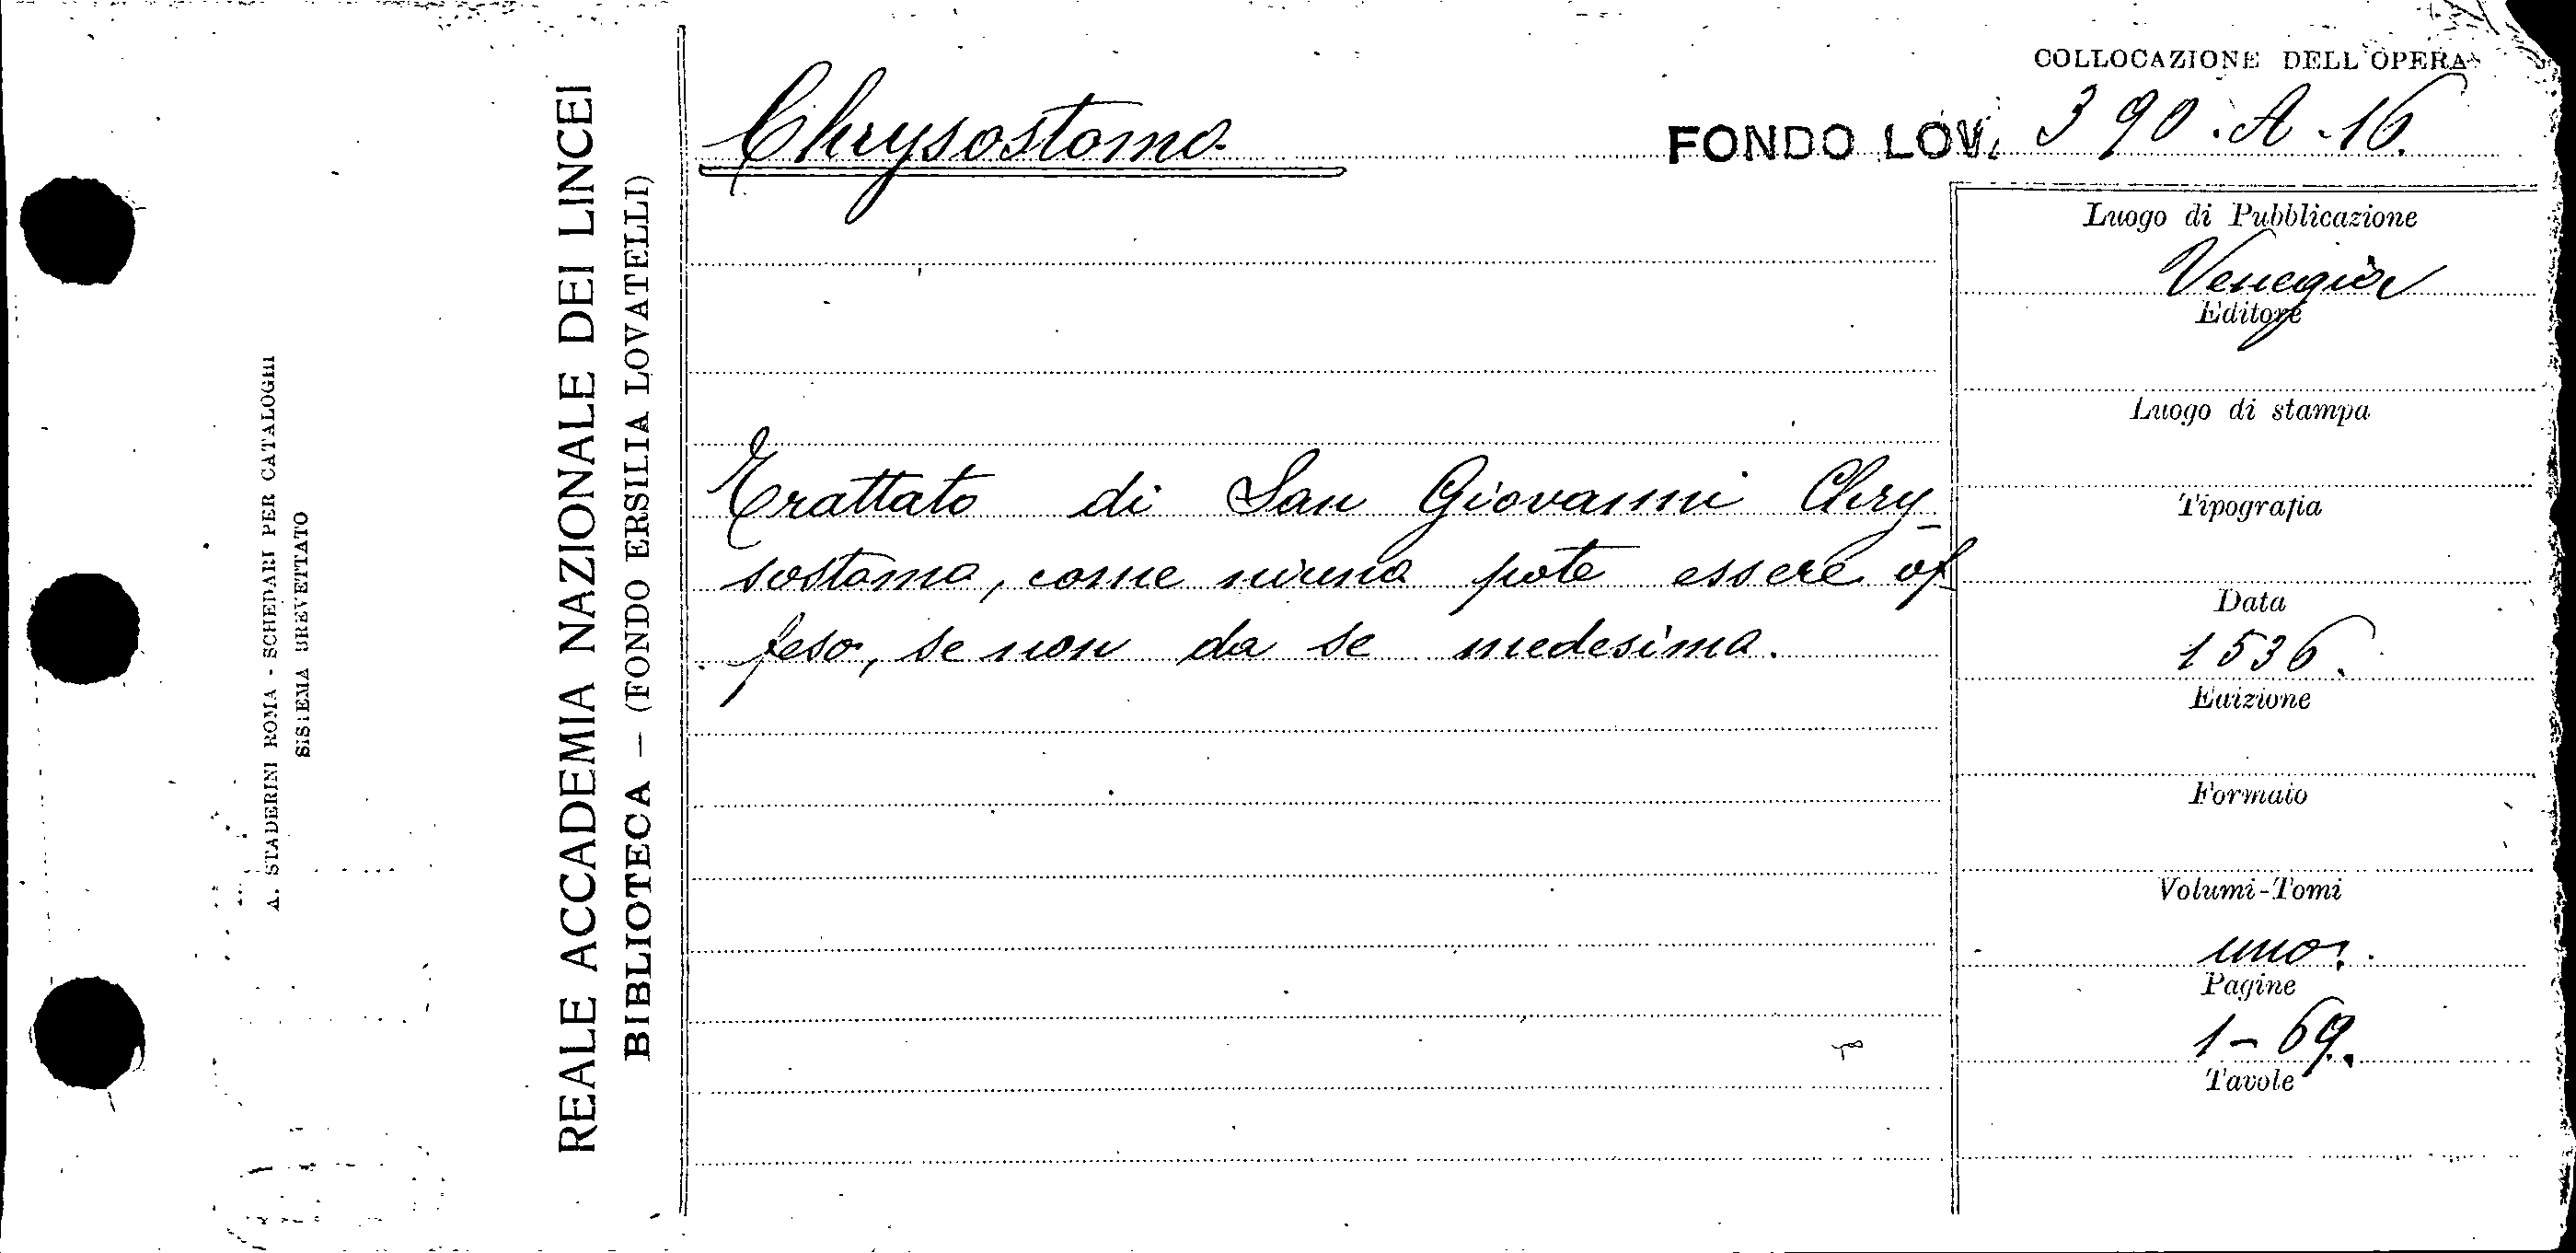 COLLOCAZIONE DELL'OPERA
Chrysostomo
FONDO LOV. 390.A.16.
REALE ACCADEMIA NAZIONALE DEI LINCEI
BIBLIOTECA — (FONDO ERSILIA LOVATELLI)
A. STADERINI ROMA - SCHEDARI PER CATALOGHI
SISTEMA BREVETTATO
Trattato di San Giovanni Chry-
sostomo, come niuno pote essere of
feso, se non da se medesimo.
Luogo di Pubblicazione
Venegia
Editore
Luogo di stampa
Tipografia
Data
1536.
Edizione
Formato
Volumi-Tomi
uno.
Pagine
1-69.
Tavole